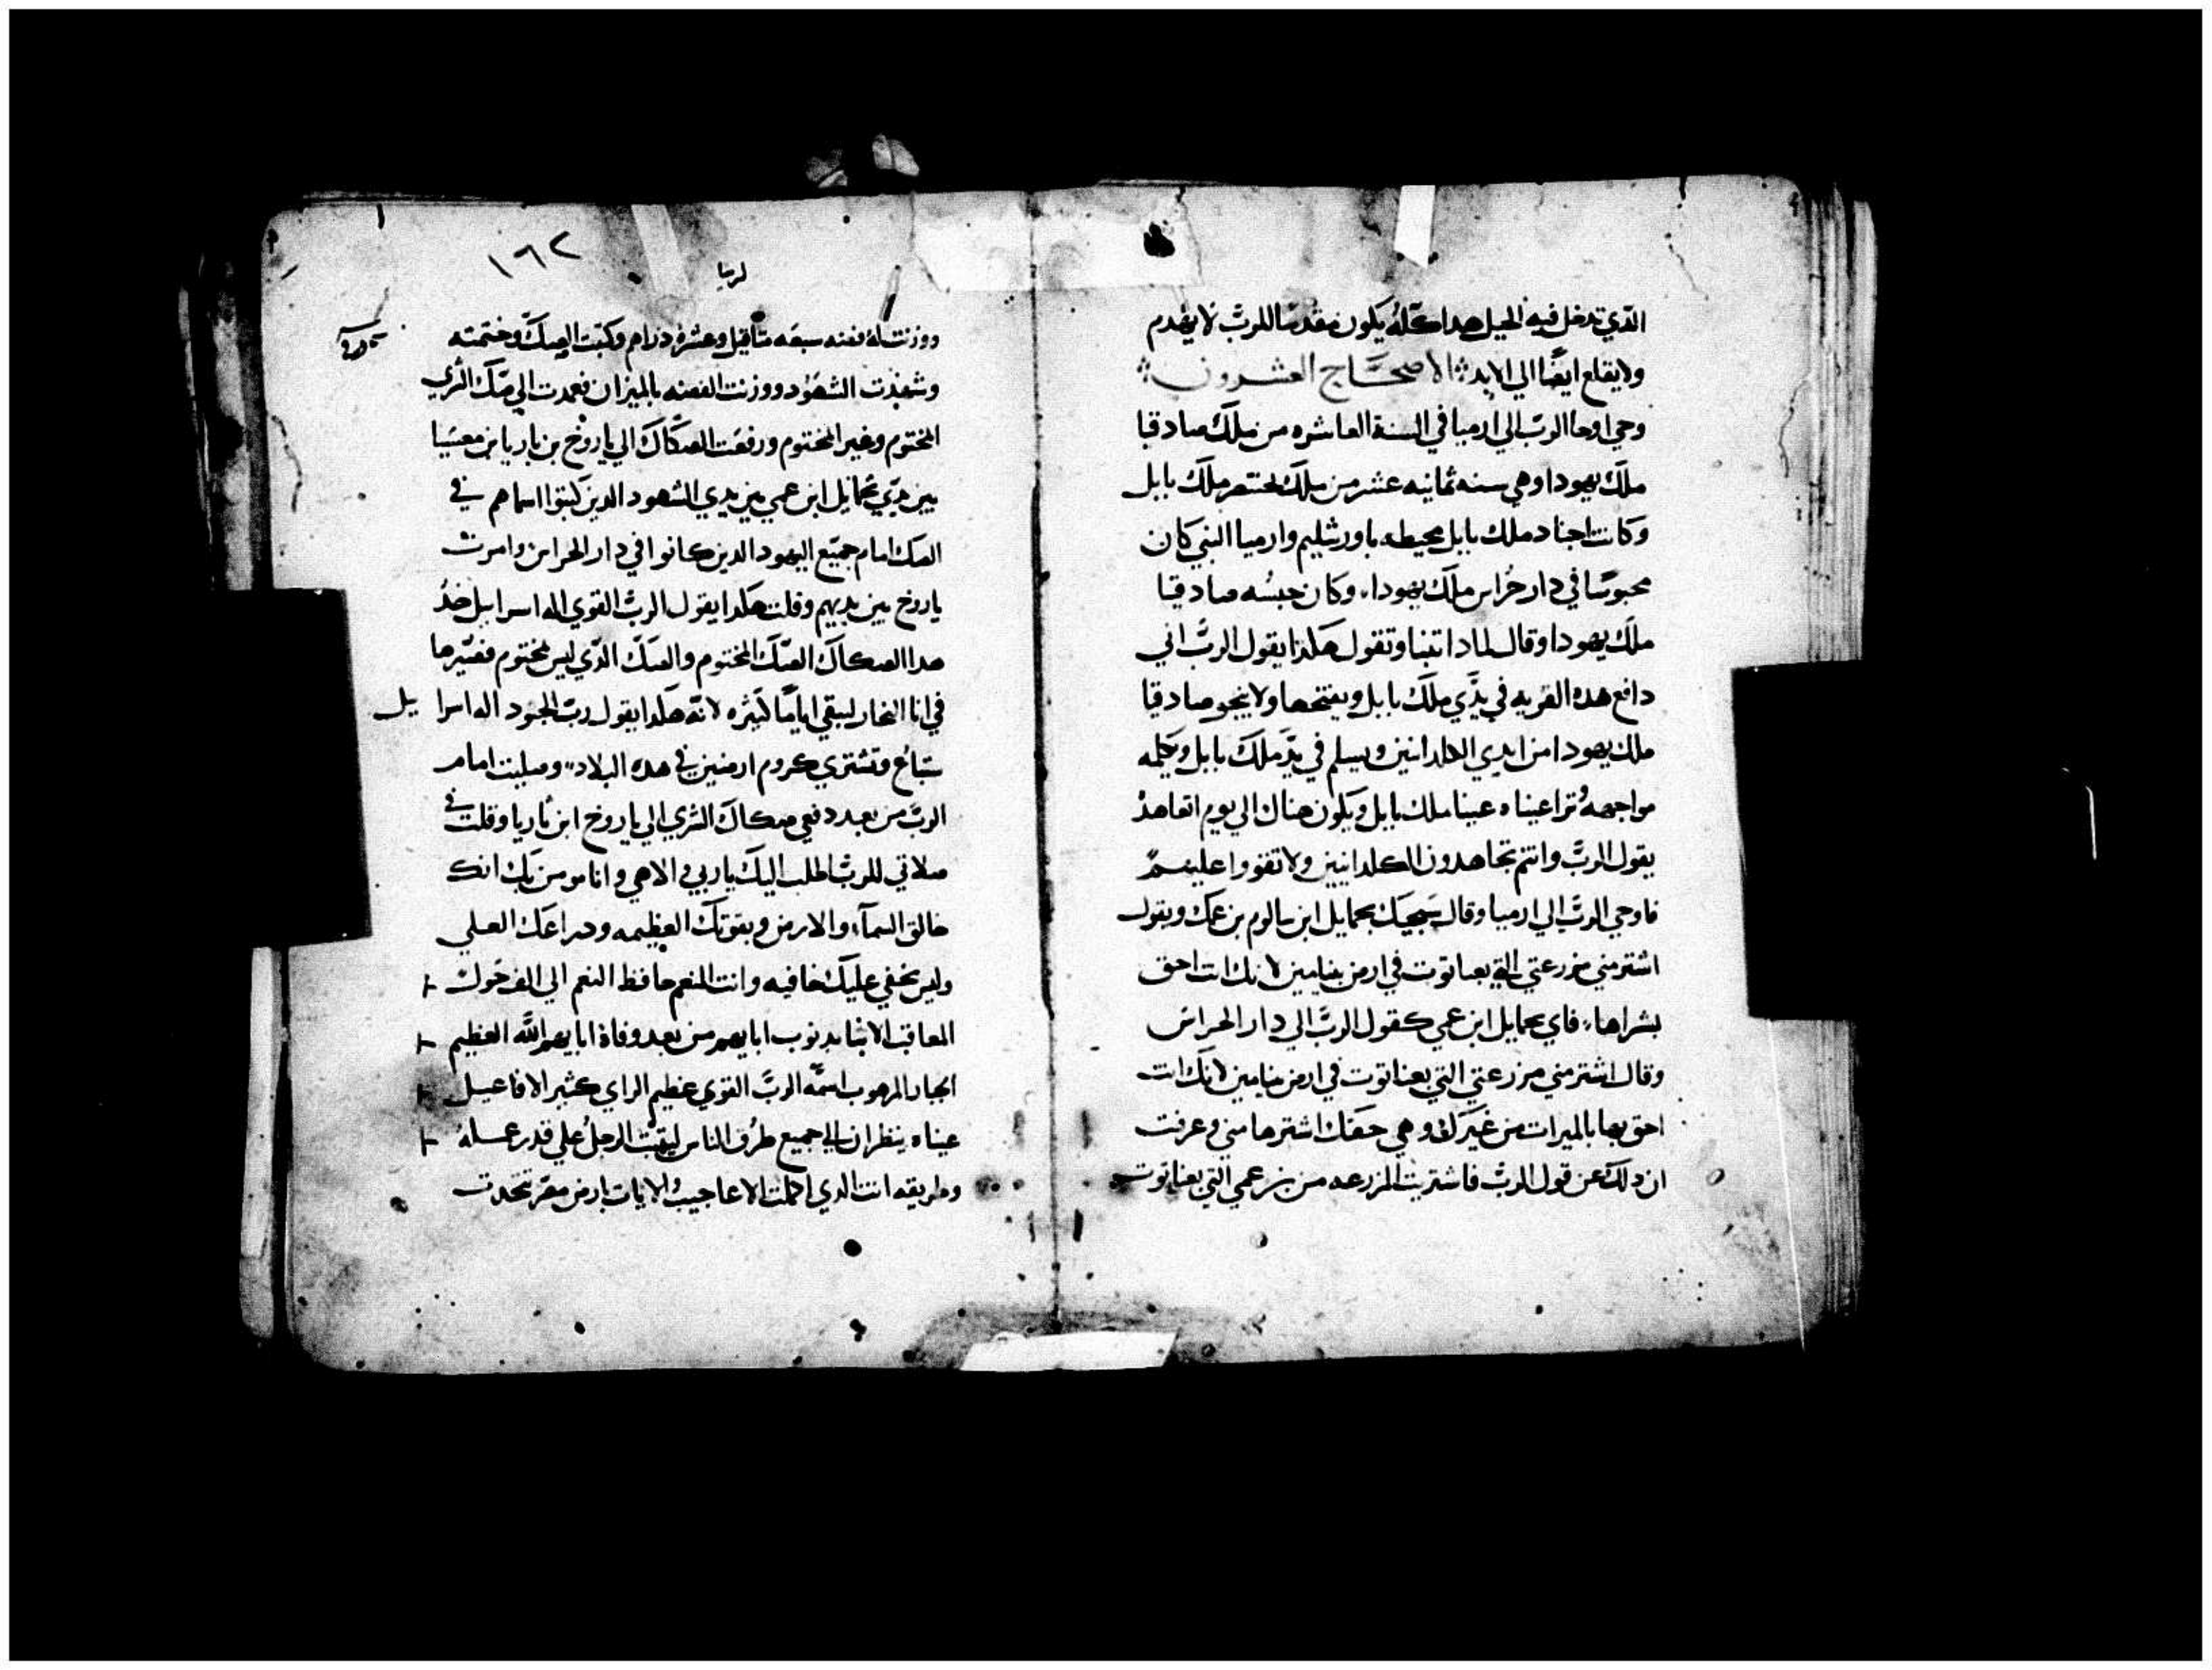 الدي تدخل فيه الخيل هدا كله يكون مقدسا للرب لا يهدم
ولا يقلع ايضا الي الابد الاصحاح العشرون
وحي اوحا الرب الي ارميا في السنة العاشره من ملك صادقيا
ملك يهودا وهي سنه ثمانيه عشر من ملك بختنصر ملك بابل
وكانت اجناد ملك بابل محيطه باورشليم وارميا النبي كان
محبوسا في دار حراس ملك يهودا وكان حبسه صادقيا
ملك يهودا وقال لمادا تتنبا وتقول هكدا يقول الرب اني
دافع هده القريه في يدي ملك بابل ويفتحها ولا ينجو صادقيا
ملك يهودا من ايدي الكلدانيين ويسلم في يد ملك بابل ويكلمه
مواجهه وترا عيناه عينا ملك بابل ويكون هناك الي يوم اتعاهده
يقول الرب وانتم تجاهدون الكلدانيين ولا تقووا عليهم
فاوحي الرب الي ارميا وقال سيجيك بحمايل ابن سالوم بن عمك ويقول
اشتر مني مزرعتي التي بعناتوت في ارض بنيامين لانك انت احق
بشراها فاي بحمايل ابن عمي كقول الرب الي دار الحراس
وقال اشتر مني مزرعتي التي بعناتوت في ارض بنيامين لانك انت
احق بها بالميرات من غيرك وهي حقك اشترها مني وعرفت
ان دلك عن قول الرب فاشتريت المزرعه من بن عمي التي بعناتوت
١٦٢
ووزنت له فضه سبعه متاقيل وعشره دراهم وكتبت الصك وختمته
وشهدت الشهود ووزنت الفضه بالميزان فعمدت الي صك الشري
المختوم وغير المختوم ورفعت الصكاك الي ياروخ بن ناريا بن معسيا
بين يدي بحمايل ابن عمي بين يدي الشهود الدين كتبوا اسماهم في
الصك امام جميع اليهود الدين كانوا في دار الحراس وامرت
ياروخ بين يديهم وقلت هكدا يقول الرب القوي اله اسراييل خد
هدا الصكاك الصك المختوم والصك الدي ليس مختوم فصيرها
في انا الفخار ليبقي اياما كثيره لانه هكدا يقول رب الجنود اله اسرا يل
ستباع وتشتري كروم ارضين في هده البلاد وصليت امام
الرب من بعد دفعي صكاك الشري الي ياروخ ابن ناريا وقلت في
صلاتي للرب اطلب اليك ياربي والاهي وانا مومن بك انك
خالق السماء والارض وبقوتك العظيمه ودراعك العلي
وليس يخفي عليك خافيه وانت المنعم حافظ النعم الي الف حول
المعاقب الابنا بدنوب ابايهم من بعد وفاة ابايهم الله العظيم
الجبار المرهوب اسمه الرب القوي عظيم الراي كثير الافاعيل
عيناه ينظران الي جميع طرق الناس ليتيب الرجل علي قدر عمله
وطريقه انت الدي اكملت الاعاجيب والايات بارض مصر تتحدت